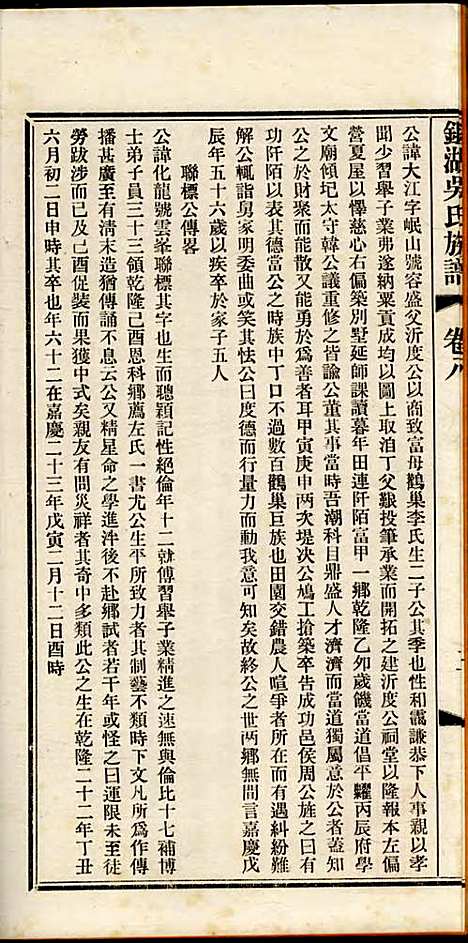 吳氏族譜 卷八
公諱大江字岷山號容盛父沂度公以商致富母鶴巢李氏生二子公其季也性和靄謙恭下人事親以孝
聞少習舉子業弗遂納粟貢成均以圖上取洎丁父艱投筆承業而開拓之建沂度公祠堂以隆報本左偏
營夏屋以懌慈心右偏築別墅延師課讀暮年田連阡陌富甲一鄉乾隆乙卯歲饑當道倡平糶丙辰府學
文廟傾圯太守韓公議重修之皆諭公董其事當時吾潮科目鼎盛人才濟濟而當道獨屬意於公者蓋知
公之於財聚而能散又能勇於為善者耳甲寅庚申兩次堤决公鳩工搶築卒告成功邑侯周公旌之曰有
功阡陌以表其德當公之時族中丁口不過數百鶴巢巨族也田園交錯農人喧爭者所在而有遇糾紛難
解公輒詣舅家明委曲或笑其怯公曰度德而行量力而動我意可知矣故終公之世两鄉無間言嘉慶戊
辰年五十六歲以疾卒於家子五人
聯標公傳畧
公諱化龍號雲峯聯標其字也生而聰穎記性絕倫年十二就傅習舉子業精進之速無與倫比十七補博
士弟子員三十三領乾隆己酉恩科鄉薦左氏一書尤公生平所致力者其制藝不類時下文凡所為作傳
播甚廣至有清末造猶傳誦不息云公又精星命之學進泮後不赴鄉試者若干年或怪之曰運限未至徒
勞跋涉而已及己酉促裝而果獲中式矣親友有問災祥者其奇中多類此公之生在乾隆二十二年丁丑
六月初二日申時其卒也年六十二在嘉慶二十三年戊寅二月十二日酉時